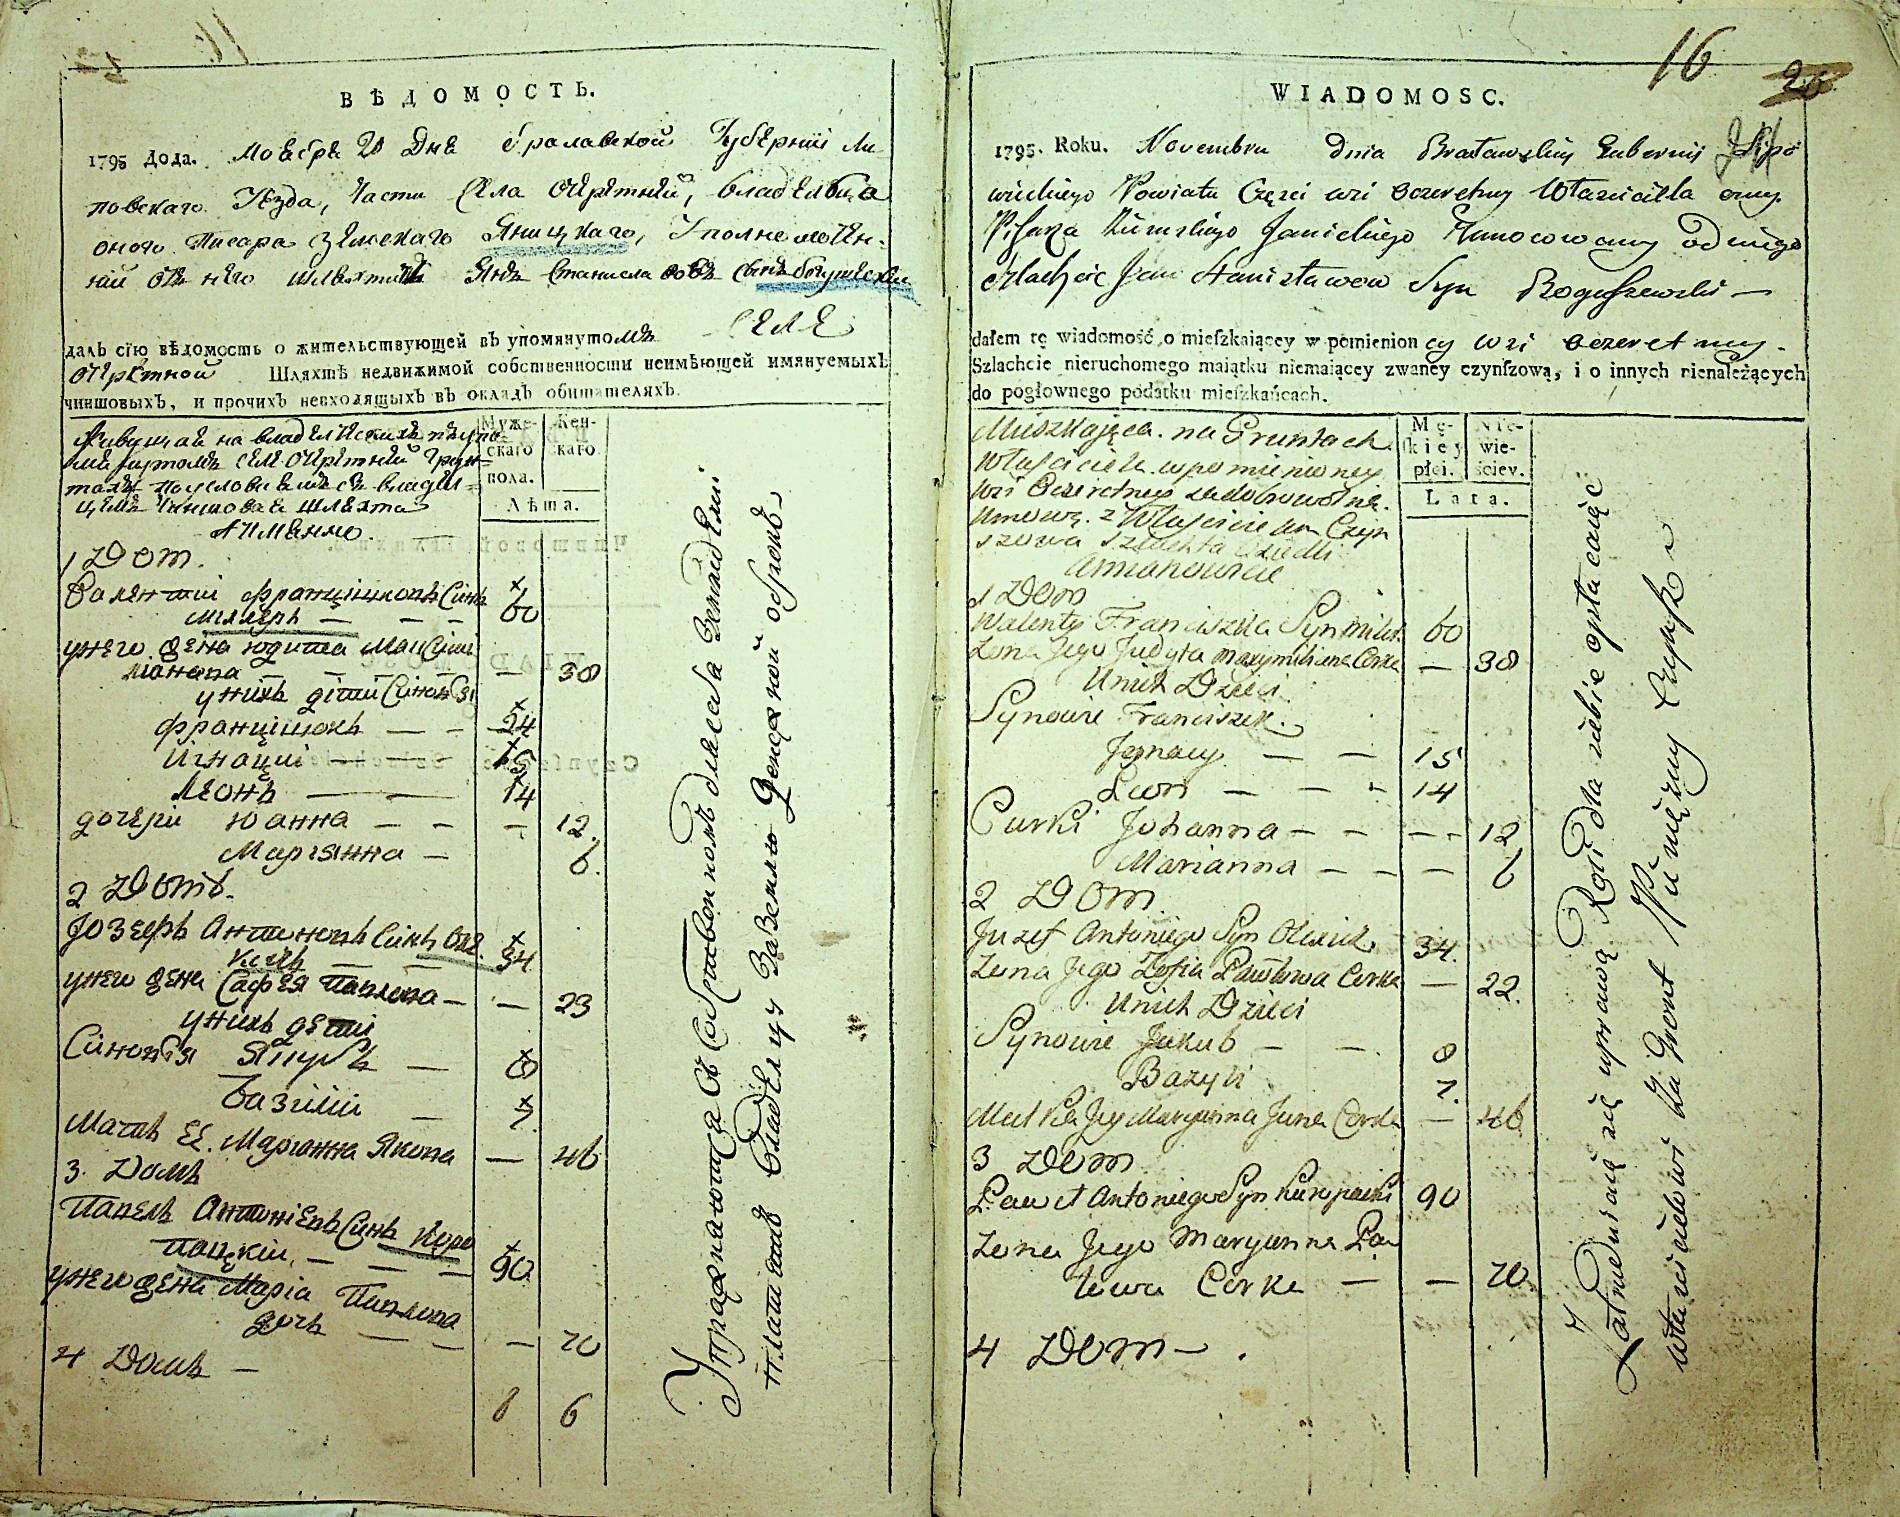 16
ВѢДОМОСТЬ.
1795 Года. Ноября 20 Дня Браславской Губернiи Ли-
повскаго Уѣзда, Части Села Очеретней, владельца
оного Писара Земскаго Яницкаго, Уполномочен-
ній отъ него шляхтичъ Янъ Станиславовъ синъ Богушевскiй
далъ сїю вѣдомость о жительствующей въ упомянутомъ Селе
Очеретной Шляхтѣ недвижимой собственности неимѣющей имянуемыхъ
чиншовыхъ, и прочихъ невходящыхъ въ окладъ обитателяхъ.
Муже-
скаго
пола.
Жен-
скаго
Лѣта.
Живущая на владелческихъ въ упо-
мянутомъ селе Очеретней грун-
тахъ по условiямъ съ владел-
цемъ Чиншовая шляхта
А имянно
1 Дом.
Валентiй Францишковъ Синъ
Миллеръ — — — 60
у него жена Юдита Максимi-
лiанова — — — 38
у нихъ дети Синовья
Францишокъ — — 24
Игнацiй — — 15
Леонъ — — 14
дочери Юанна — — — 12.
Марiянна — 6.
2 Домъ.
Юзефъ Антоневъ Синъ Оле-
кскъ — — 34
у него жена Софея Павлова — — 23
у нихъ дети
Синовья Якубъ — 8
Базилiй — 7.
Мать ее Марiанна Якова — 46
3 Домъ
Павелъ Антонiевъ Синъ Куро-
пацкiй — — — 90.
у него жена Марiа Павлова
дочь — — — 70
4 Домъ —
8 6
Упражняются въ Собственномъ для себя Земледелiи
платятъ владельцу за Землю Денежной оброкъ
16
26
WIADOMOSC.
1795. Roku. Novembra Dnia Bracławskiy Gubernij Lipo-
wieckiego Powiatu Częsci wsi Oczeretny Własciciela oney
Pisarza Ziemskiego Janickiego Umocowany od niego
Szlachcic Jan Stanisławow Syn Boguszewski —
dałem tę wiadomość o mieszkaiącey w pomienioney wsi Oczeretney.
Szlachcie nieruchomego maiątku niemaiącey zwaney czynszową, i o innych nienależących
do pogłownego podatku mieszkańcach.
Mę-
skiey
płci.
Nie-
wie-
ściey.
Lata.
Mieszkająca na Gruntach
Właściciela wpomienioney
wsi Oczeretney zadobrowolną
Umową z Właścicielem Czyn-
szowa Szlachta
Amianowicie
1 Dom
Walenty Franciszka Syn Miler 60
Zona Jego Judyta Maxymiliana Corka — 38
Unich Dzieci
Synowie Franciszek.
Jgnacy — — 15
Leon — — - 14
Curki Johanna — — — - 12
Marianna — — — 6
2 Dom.
Juzef Antoniego Syn Olexik 34.
Zona Jego Zofia Pawłowa Corka — 22.
Unich Dzieci
Synowie Jakub — — 8
Bazyli 7.
Matka Jey Maryanna Jana Corka — 46
3 Dom
Paweł Antoniego Syn Kuropacki 90
Zona Jego Maryanna Pa-
włowa Corka — — 70.
4 Dom — .
Zatrudniaią się uprawą Roli dla siebie opłacaiąc
właścicielowi za Grunt Pieniężny Czynsz